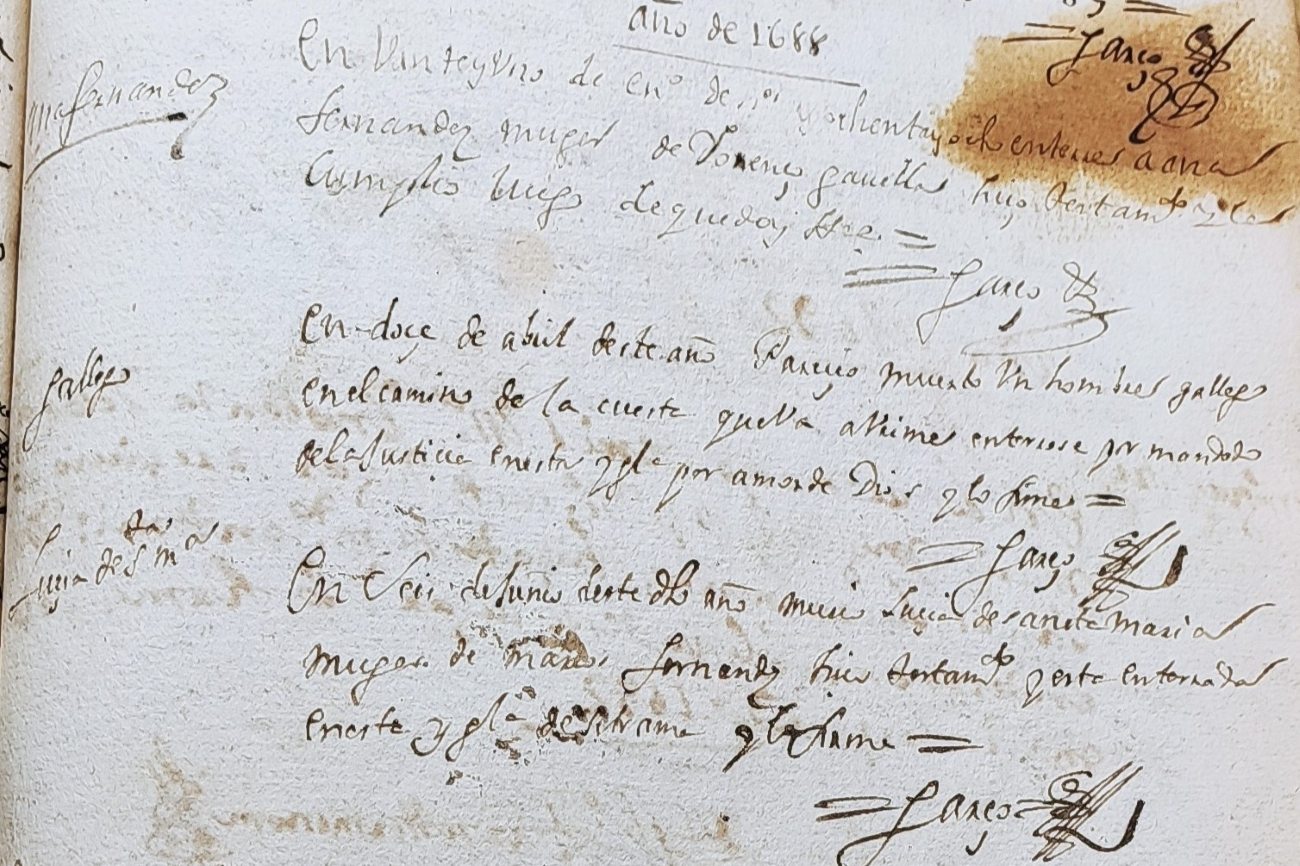 año de 1688
Garço
ana fernandez
En Vinte y Uno de en.º de y ochenta y ocho enterre a ana
fernandez muger de Lorenço gavella hiço testam.to y le
Cumplio luego de que doy ffee =
= Garço
gallego
En doçe de abril deste año Pareçio muerto Un hombre gallego
en el camino de la cuesta que Va a enterrose por mandado
de la Justicia en esta ygl.a por amor de Dios y lo firme =
= Garço
Luçia de S.ta m.a
En Seis de Junio deste dho año murio Luçia de santa Maria
muger de marcos fernandez hiço testam.to y esta enterrada
en esta ygl.a de y lo firme =
= Garço =